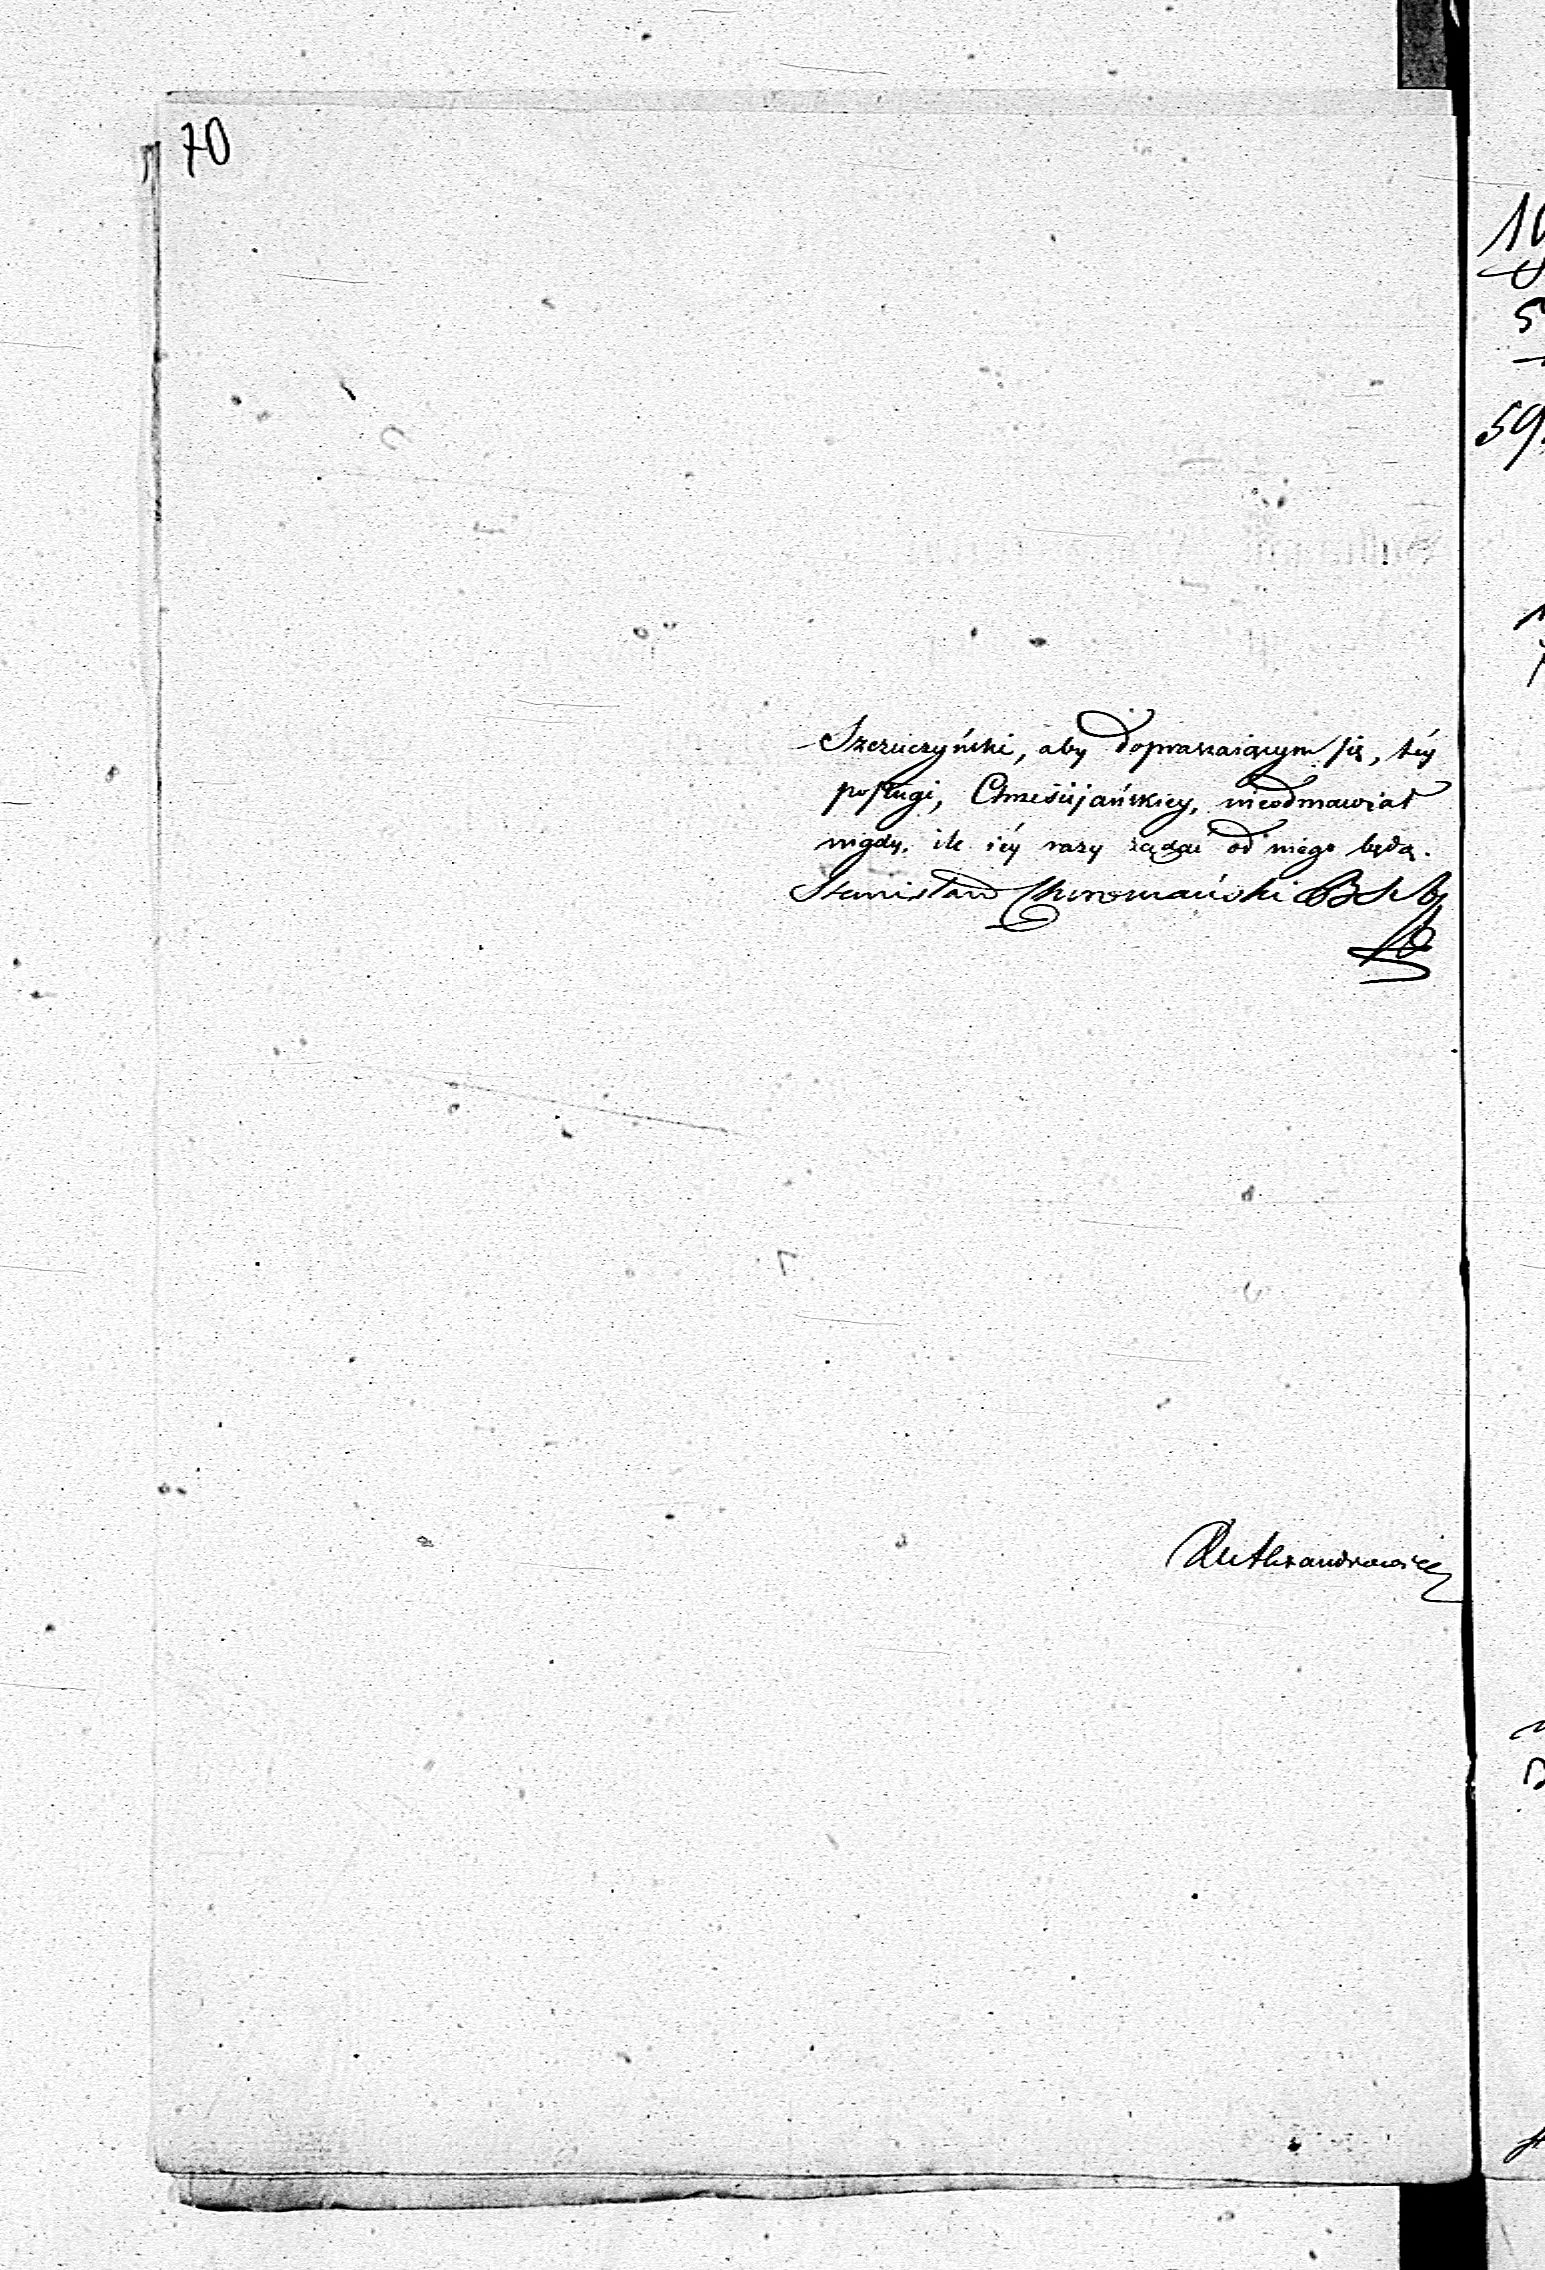 70
Szczuczyński, aby dopraszaiącym się, téy
posługi, Chrześcijańskiey, nieodmawiał
nigdy, ile iéy razy żądać od niego będą.
Stanisław Choromański
Aleksandrowicz